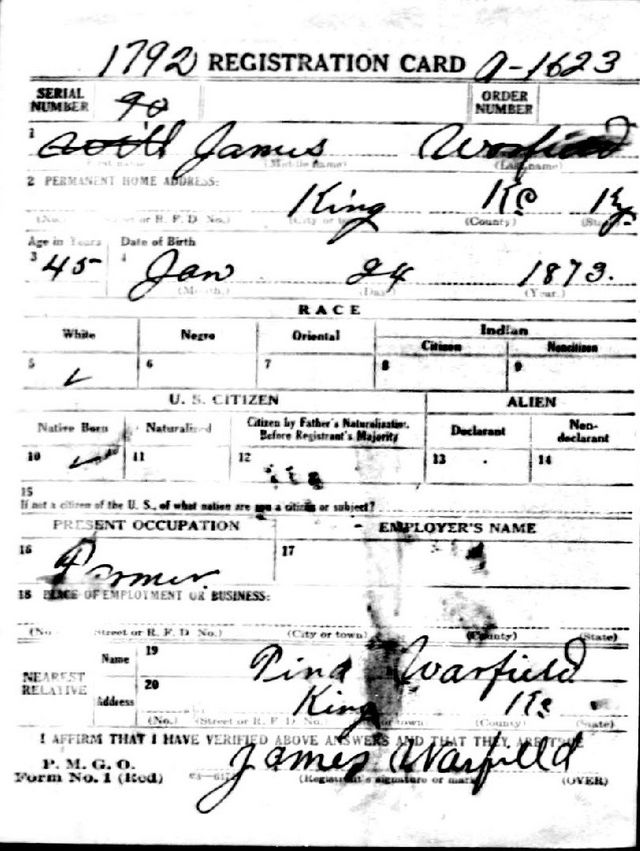 1792 REGISTRATION CARD A-1623
SERIAL NUMBER 90 ORDER NUMBER
1 Will James Warfield
(Middle name) (Last name)
2 PERMANENT HOME ADDRESS:
King Ks Ky.
(No.) (Street or R. F. D. No.) (City or town) (County) (State)
Age in Years Date of Birth
3 45 4 Jan 24 1873.
(Month.) (Day.) (Year.)
RACE
White Negro Oriental Indian
Citizen Noncitizen
5 ✓ 6 7 8 9
U. S. CITIZEN ALIEN
Native Born Naturalized Citizen by Father's Naturalization Before Registrant's Majority Declarant Non-declarant
10 ✓ 11 12 13 14
15
If not a citizen of the U. S., of what nation are you a citizen or subject?
PRESENT OCCUPATION EMPLOYER'S NAME
16 17
18 PLACE OF EMPLOYMENT OR BUSINESS:
(No.) (Street or R. F. D. No.) (City or town) (County) (State)
NEAREST RELATIVE Name 19 Pina Warfield
Address 20 King Ks
(No.) (Street or R. F. D. No.) (City or town) (County) (State)
I AFFIRM THAT I HAVE VERIFIED ABOVE ANSWERS AND THAT THEY ARE TRUE
P. M. G. O.
Form No. 1 (Red) James Warfield
(Registrant's signature or mark) (OVER)